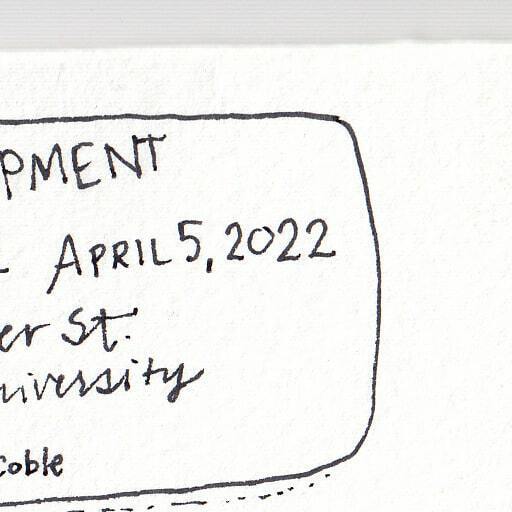 PMENT
- APRIL 5, 2022
er St.
niversity
coble